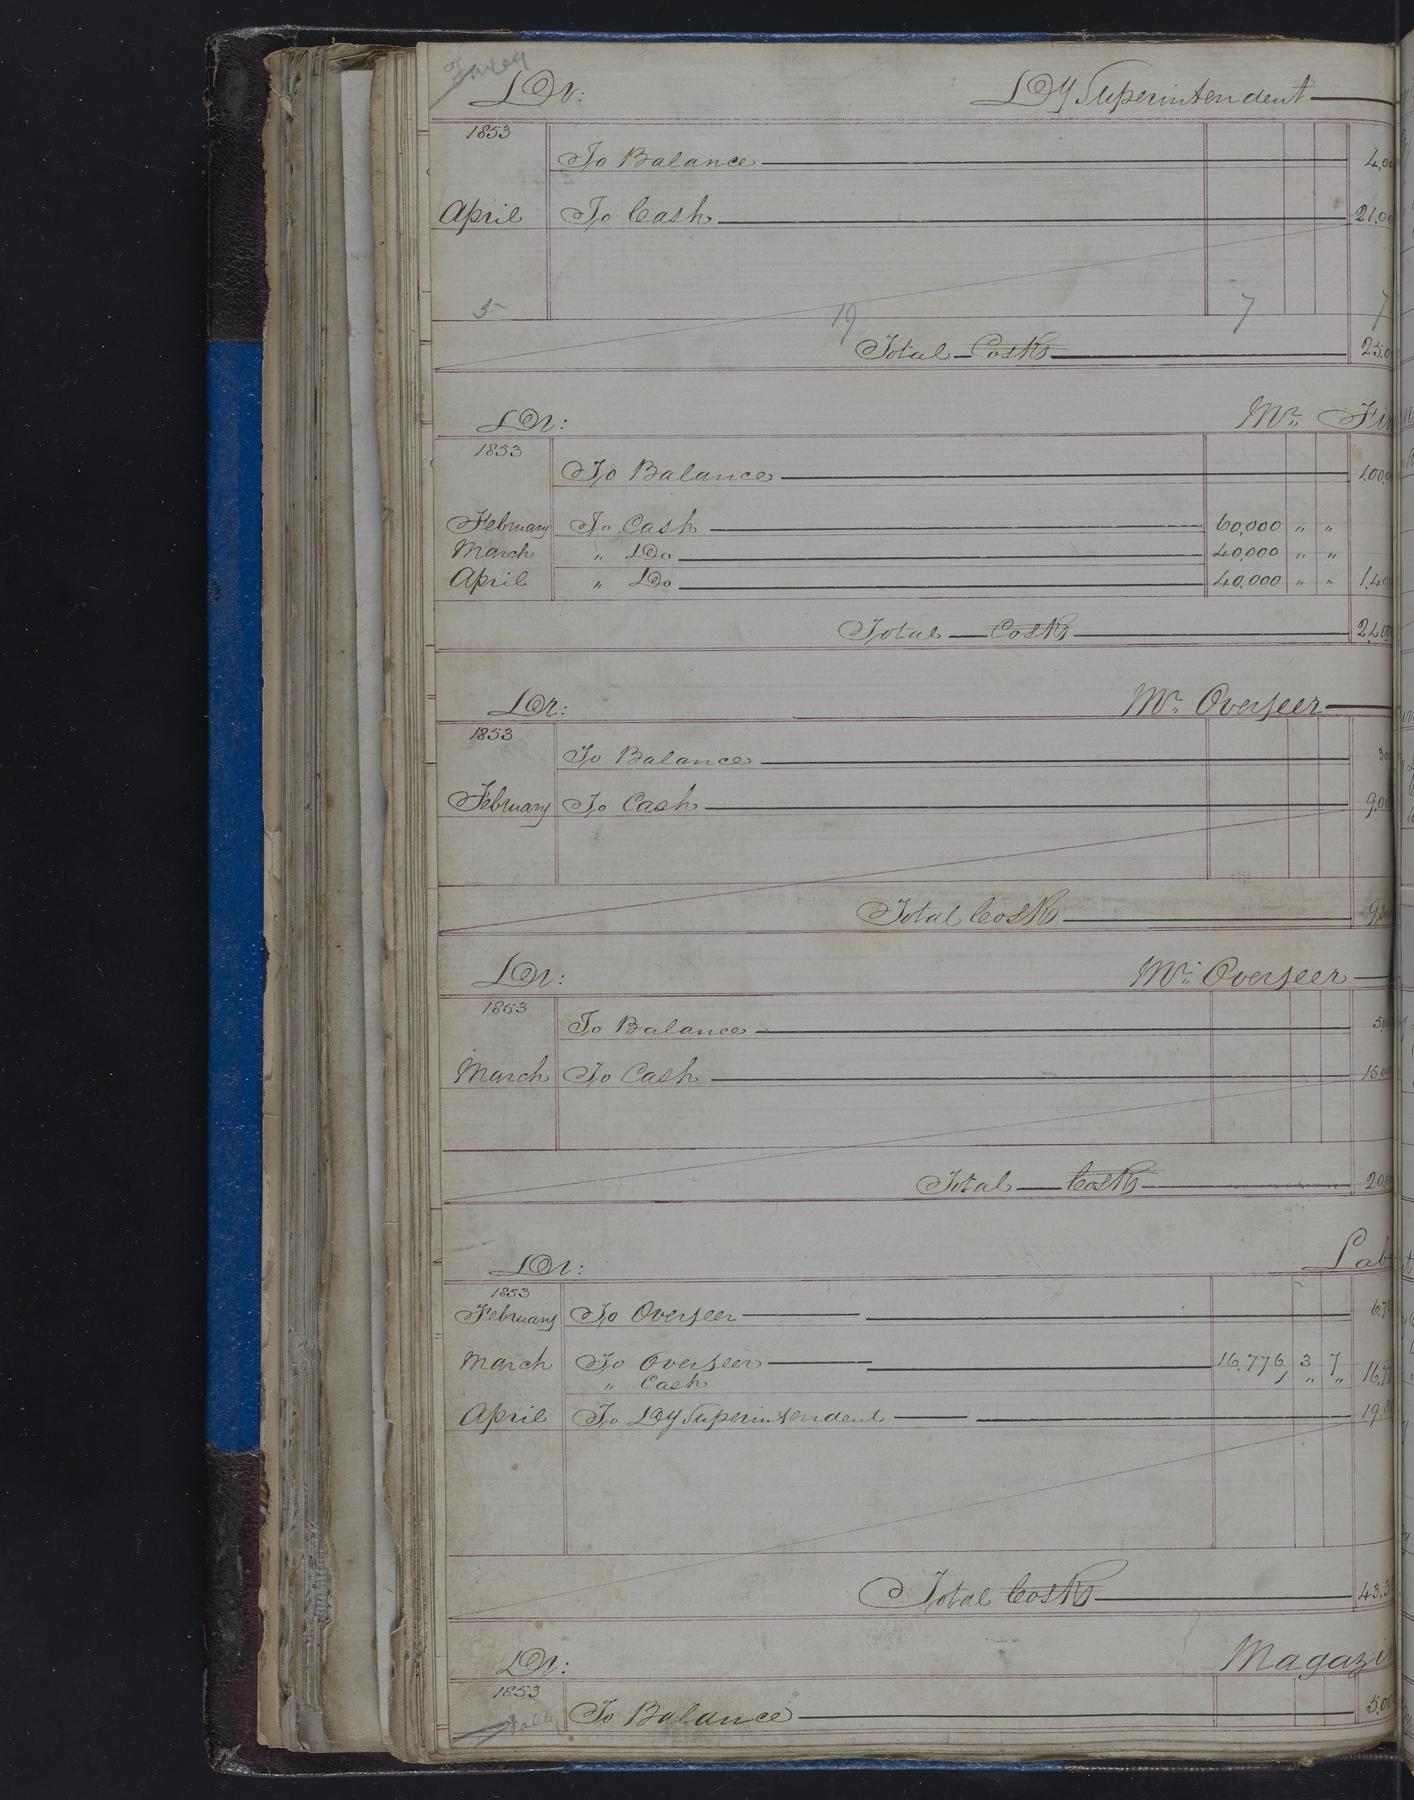 Dr: Dy Superintendent
1853
To Balance 4,00
April To Cash 21,00
5 19 7 7
Total Costs 25,0
Dr: Mr. Fin
1853
To Balance 1,00,0
February To Cash 60,000 " "
March " Do 40,000 " "
April " Do 40,000 " " 1,40
Total Costs 2,40,
Dr: Mr. Overseer
1853
To Balance 30
February To Cash 9,00
Total Costs 9,3
Dr: Mr. Overseer
1853
To Balance 5,0
March To Cash 15,0
Total Costs 20,0
Dr: Lab
1853
February To Overseer 6,7
March To Overseer 16,776, 3 7
" Cash " " 16,7
April To Dy Superintendent 19,8
Total Costs 43,3
Dr: Magazi
1853
To Balance 5,0